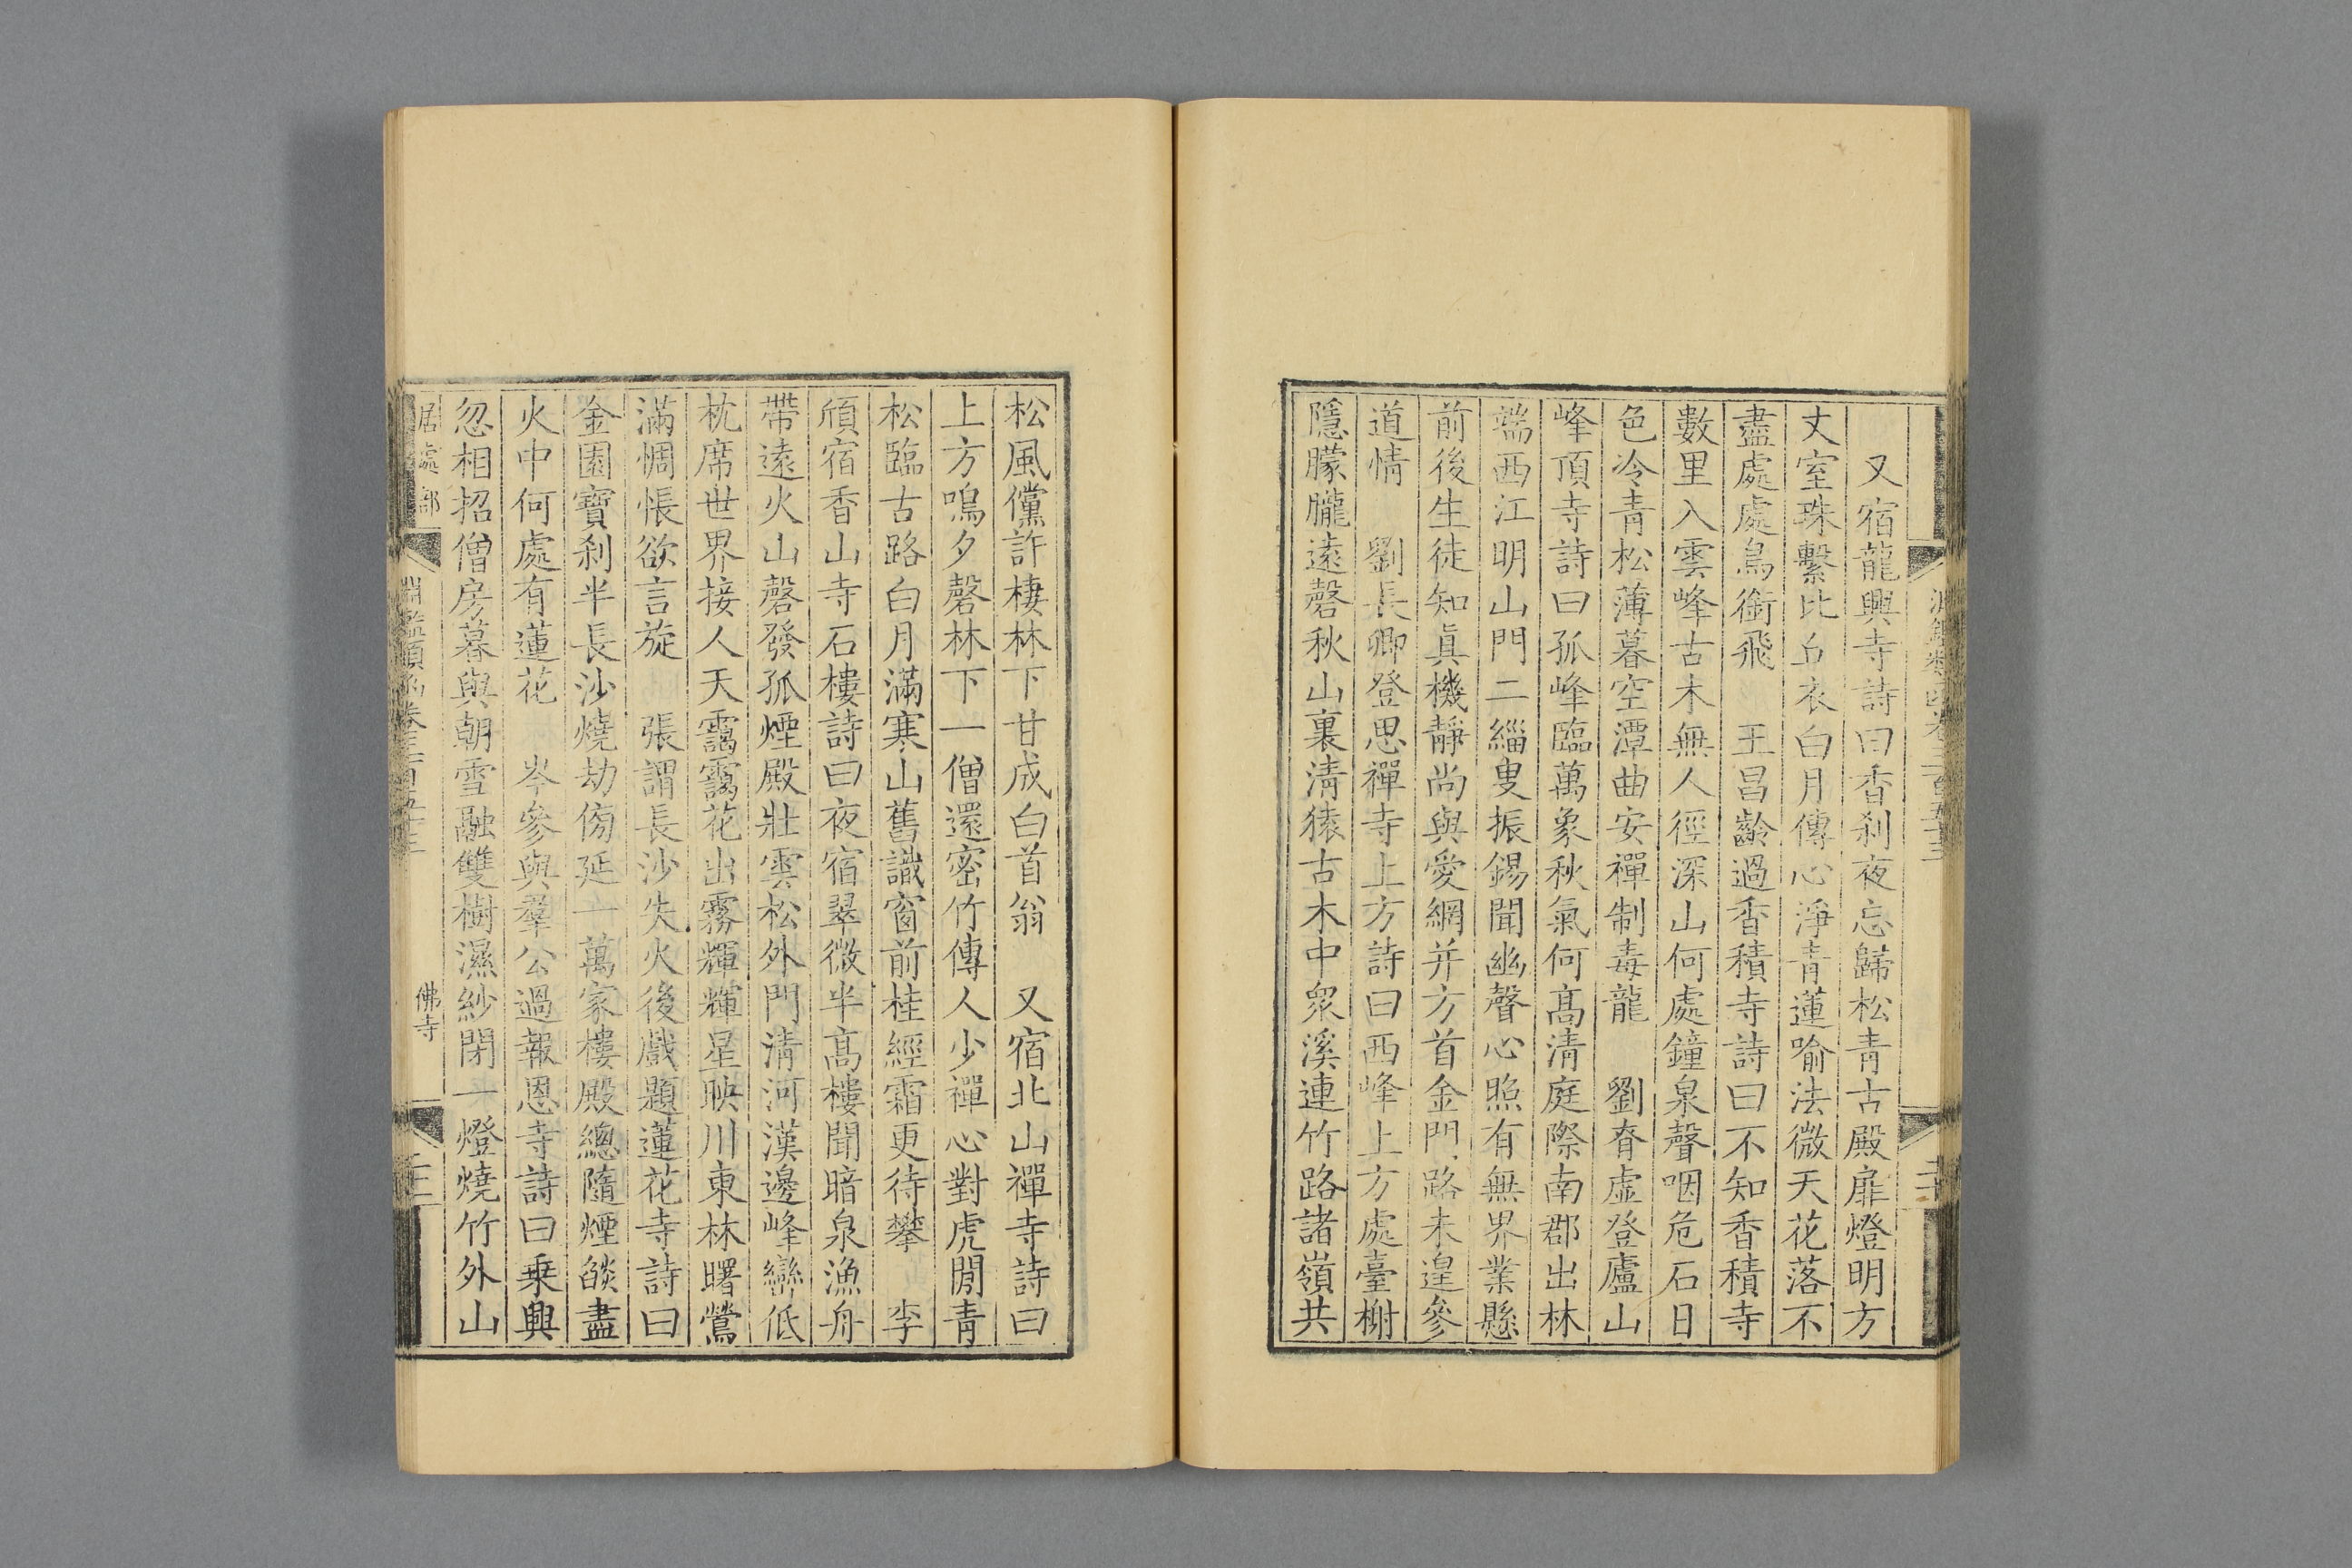 又宿龍興寺詩曰香刹夜忘歸松青古殿扉燈明方
丈室珠繫比丘衣白月傳心淨青蓮喻法微天花落不
盡處處鳥銜飛　王昌齡過香積寺詩曰不知香積寺
數里入雲峰古木無人徑深山何處鐘泉聲咽危石日
色冷青松薄暮空潭曲安禪制毒龍　劉脊虛登廬山
峰頂寺詩曰孤峰臨萬象秋氣何高清庭際南郡出林
端西江明山門二緇叟振錫聞幽聲心照有無界業懸
前後生徒知眞機靜尚與愛網并方首金門路未遑參
道情　劉長卿登思禪寺上方詩曰西峰上方處臺榭
隱朦朧遠磬秋山裏淸猿古木中衆溪連竹路諸嶺共
松風儻許棲林下甘成白首翁　又宿北山禪寺詩曰
上方鳴夕磬林下一僧還密竹傳人少禪心對虎閒青
松臨古路白月滿寒山舊識窗前桂經霜更待攀　李
頎宿香山寺石樓詩曰夜宿翠微半高樓聞暗泉漁舟
帶遠火山磬發孤煙殿壯雲松外門清河漢邊峰巒低
枕席世界接人天靄靄花出霧輝輝星映川東林曙鶯
滿惆悵欲言旋　張謂長沙失火後戲題蓮花寺詩曰
金園寶刹半長沙燒劫傍延一萬家樓殿總隨煙燄盡
火中何處有蓮花　岑參與羣公過報恩寺詩曰乗興
忽相招僧房暮與朝雪融雙樹濕紗閉一燈燒竹外山
居處部
淵鑑類函卷三百五十三
佛寺